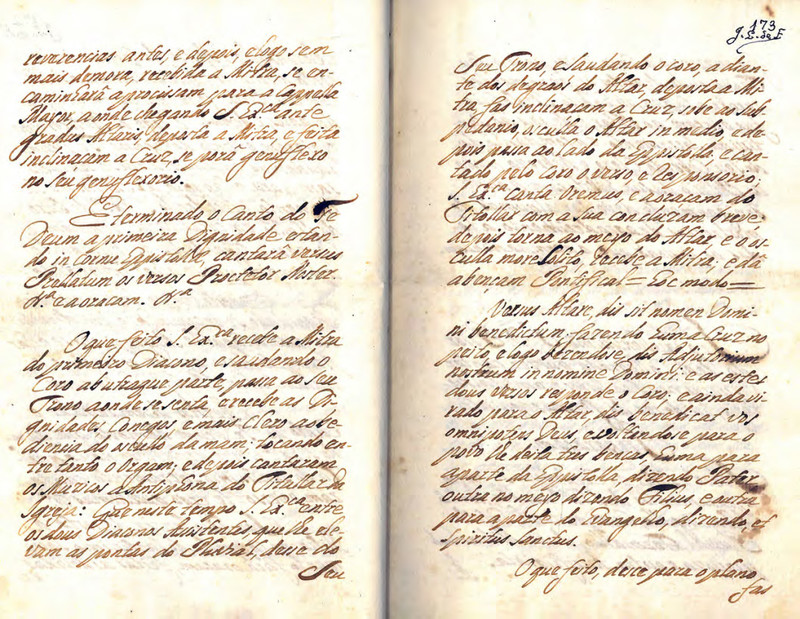 reverencias antes, e depois, e logo sem
mais demora, recebida a Mitra, se en-
caminharâ a procissam para a Cappella
Mayor, aonde chegando S. Ex.ca ante
gradus Altaris, deposta a Mitra, e feita
inclinaçam a Cruz, se porâ genuflexo
no seu genuflexorio.
E terminado o Canto do Te
Deum a primeira Dignidade estan-
do in Cornu Epistolæ, cantarâ versus
Prellatum os versos Protector Noster
&.a e a oraçam. &.a
O que feito S. Ex.ca recebe a Mitra
do primeiro Diacono, e saudando o
Coro ab utraque parte, passa ao seu
Trono aonde se senta, e recebe as Di-
gnidades Conegos, e mais Clero aobe-
diencia do osculo da mam; tocando en-
tre tanto o Orgam; e depois cantaram
os Muzicos a Antiphona do Titullar da
Igreja: Que neste tempo S. Ex.ca entre
os dous Diaconos Assistentes, que lhe ele-
vam as pontas do Pluvial, desce do
Seu
173
Seu Trono, e saudando o coro, a dian-
te dos degraos do Altar, deposta a Mi-
tra, fas inclinacam a Cruz, sobe ao sub
pedanio, oscula o Altar in medio, e de
pois passa ao lado da Epistolla, e can-
tado pelo coro o verso, e Responsorio;
S. Ex.ca canta Oremus, e a oracam do
Titollar com a sua concluzam breve
depois torna ao meyo do Altar, e o os-
cula more solito, recebe a Mitra; e dâ
abençam Pontifical = hoc modo =
Versus Altare, dis sit nomen Domi-
ni benedictum fazendo huma Cruz no
peito, e logo benzendose, dis Adjutorium
nostrum in nomine Domini: e as estes
dous versos responde o Coro; e ainda vi-
rado para o Altar, dis benedicat vos
omnipotens Deus, e voltandose para o
povo lhe deita tres bencus, huma para
a parte da Epistolla, dizendo Pater
outra no meyo dizendo Filius, e outra
para a parte do Evangelho, dizendo, et
Spiritus Sanctus.
O que feito, desce para o plano
fas